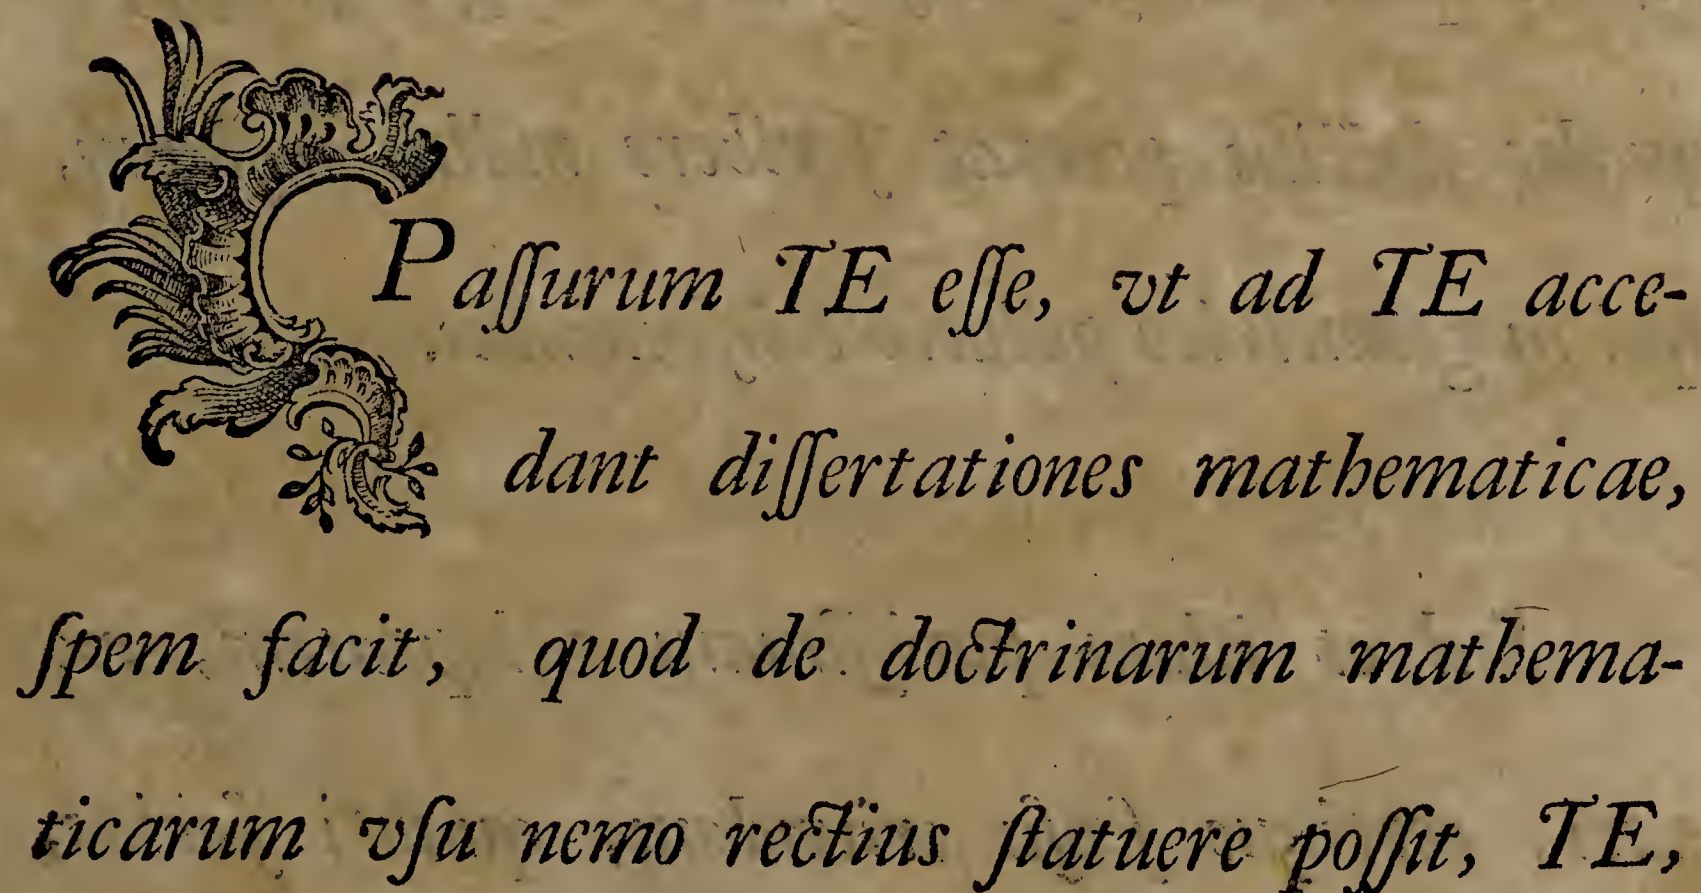 Paſſurum TE eſſe, vt ad TE acce-
dant diſſertationes mathematicae,
ſpem facit, quod de doctrinarum mathema-
ticarum vſu nemo rectius ſtatuere poſſit, TE,